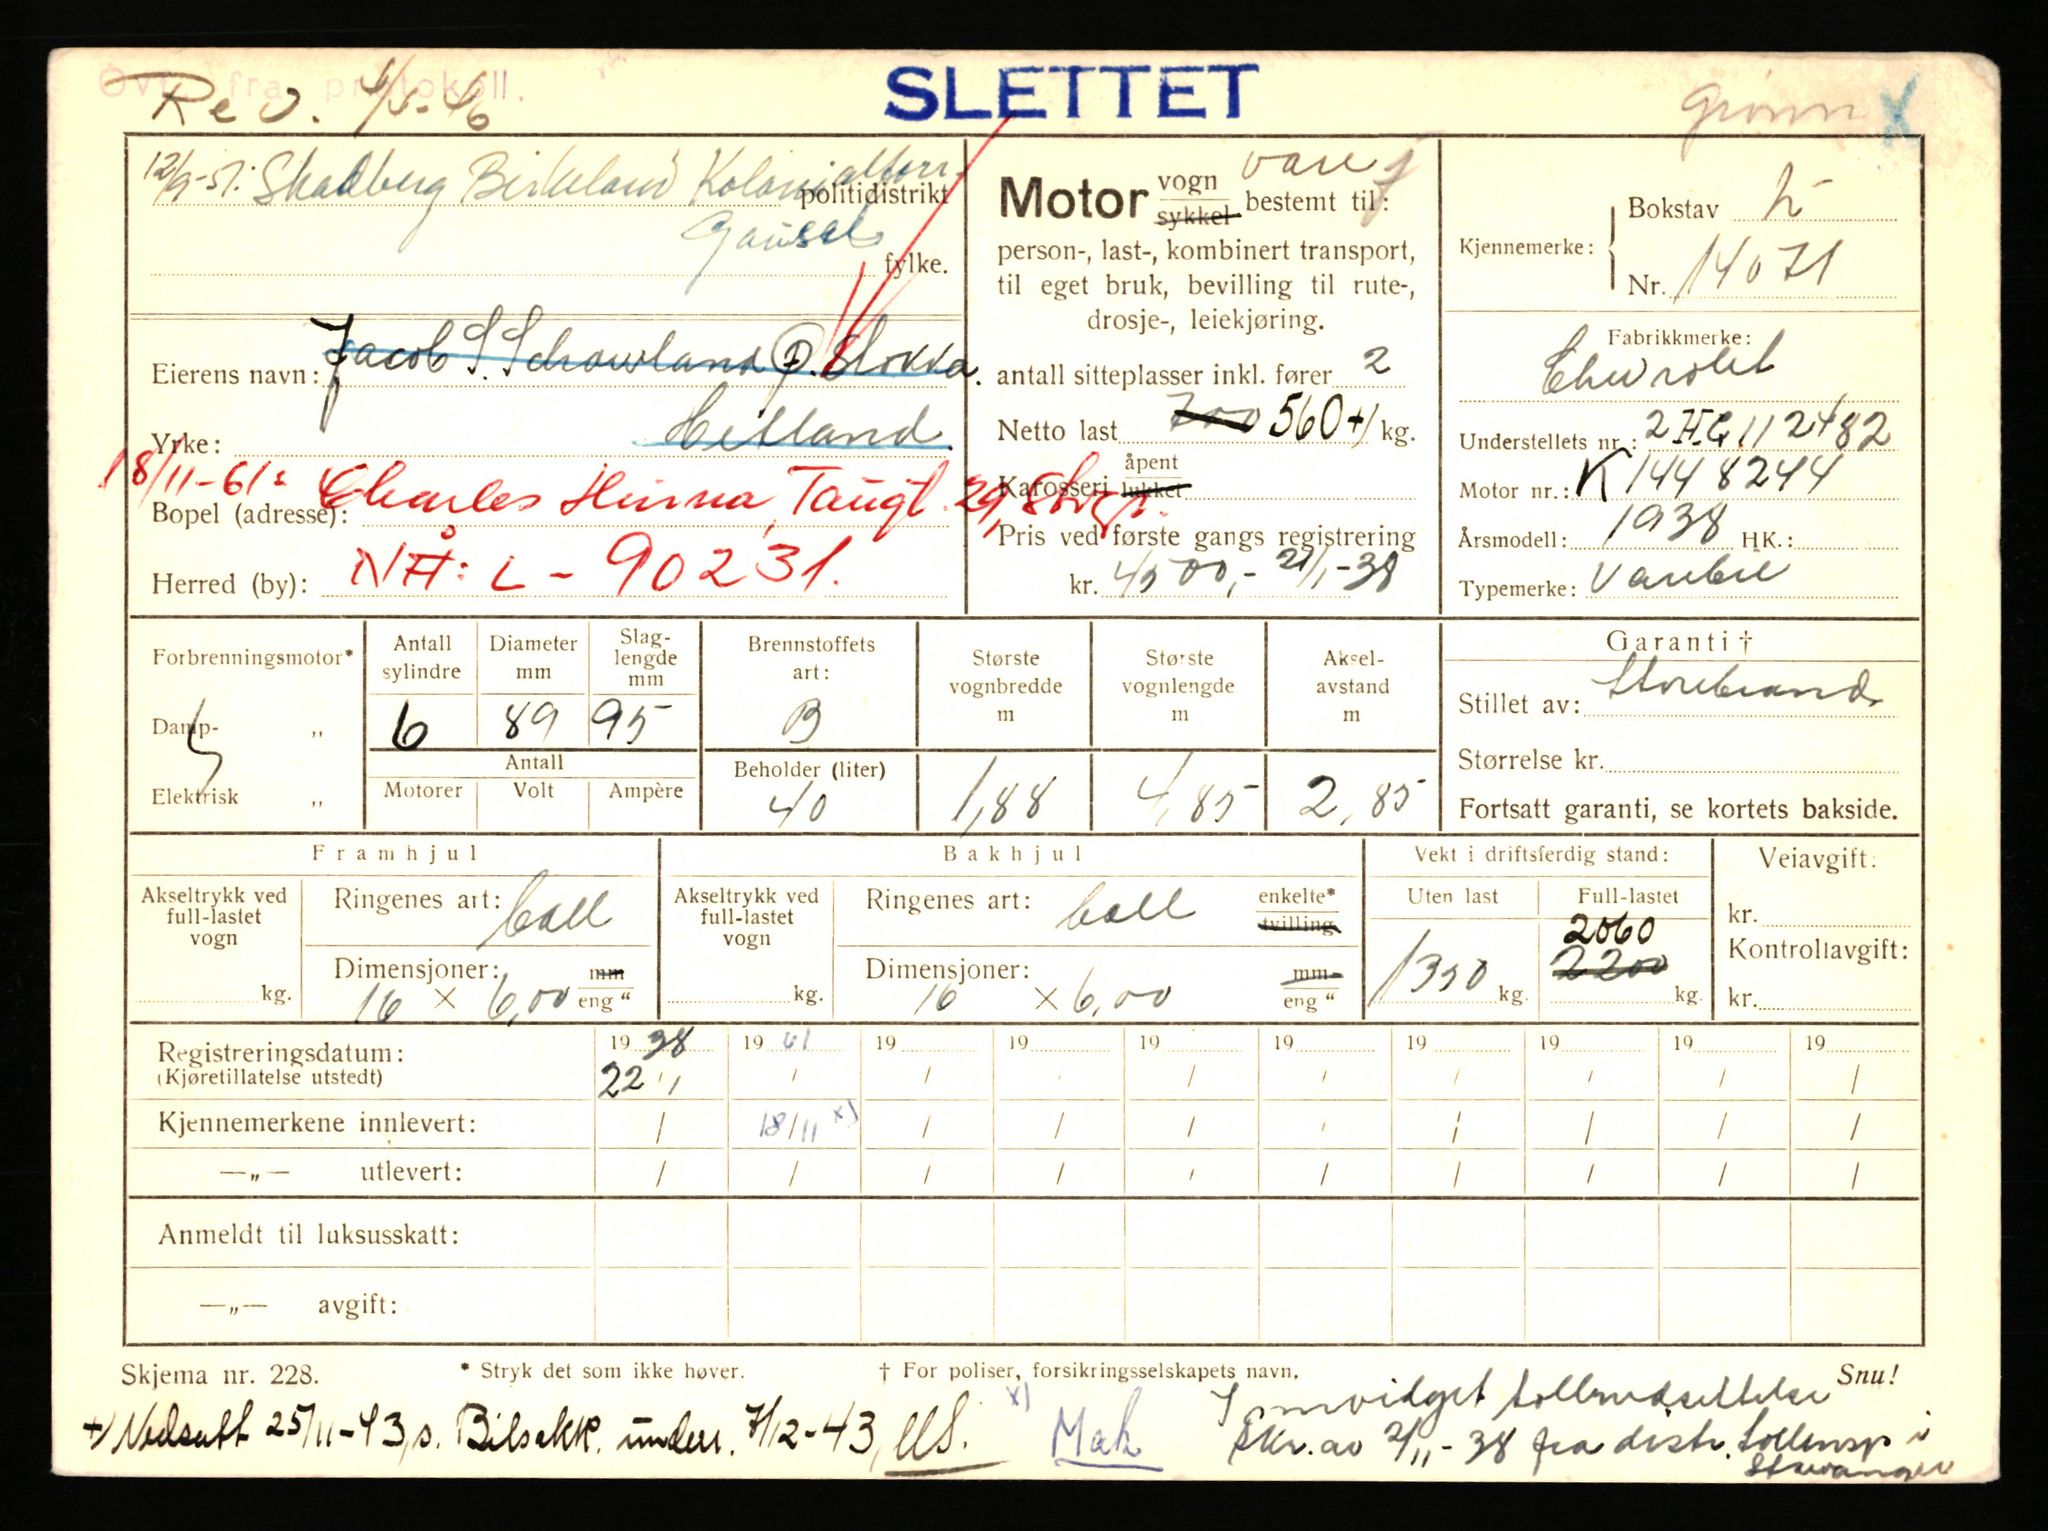 Overf. fra protokoll.
SLETTET
Rev. 4/5-46
Grønn X
12/9-51: Skadberg Birkeland Kolonialforr.
politidistrikt
Gausel
fylke.
Eierens navn: Jacob S. Schouland p. Stokka.
Yrke: Hetland
18/11-61: Charles Hinna, Taugt. 29, Stvgr.
Bopel (adresse):
Herred (by): NÅ: L - 90231.
vare
Motor vogn sykkel bestemt til:
person-, last-, kombinert transport,
til eget bruk, bevilling til rute-,
drosje-, leiekjøring.
antall sitteplasser inkl. fører 2
Netto last 700 560 +) kg.
Karosseri åpent lukket
Pris ved første gangs registrering
kr. 4500,- 21/1-38
Kjennemerke: Bokstav L
Nr. 14071
Fabrikkmerke:
Chevrolet
Understellets nr.: 2 HG 112482
Motor nr.: K 1448244
Årsmodell: 1938 HK.:
Typemerke: Varebil
Forbrenningsmotor*
Damp- „
Elektrisk „
Antall sylindre 6
Diameter mm 89
Slaglengde mm 95
Antall
Motorer Volt Ampère
Brennstoffets art: B
Beholder (liter) 40
Største vognbredde m 1,88
Største vognlengde m 4,85
Aksel-avstand m 2,85
Garanti †
Stillet av: Storebrand
Størrelse kr.
Fortsatt garanti, se kortets bakside.
Framhjul
Akseltrykk ved full-lastet vogn kg.
Ringenes art: ball
Dimensjoner: 16 × 6,00 mm eng "
Bakhjul
Akseltrykk ved full-lastet vogn kg.
Ringenes art: ball enkelte* tvilling
Dimensjoner: 16 × 6,00 mm eng "
Vekt i driftsferdig stand:
Uten last 1350 kg.
Full-lastet 2060 2200 kg.
Veiavgift:
kr.
Kontrollavgift:
kr.
Registreringsdatum: 19 38 19 61 19 19 19 19 19 19 19 19
(Kjøretillatelse utstedt) 22/1 / / / / / / / /
Kjennemerkene innlevert: / 18/11 x) / / / / / / / /
—„— utlevert: / / / / / / / / / /
Anmeldt til luksusskatt:
—„— avgift:
Skjema nr. 228. * Stryk det som ikke høver. † For poliser, forsikringsselskapets navn. Snu!
+) Nedsatt 25/11-43, s. Bilsakk. underr. 7/12-43, x) Mak
tollnedsettelse
skr. av 2/11-38 fra distr. tollinsp. i
Stavanger